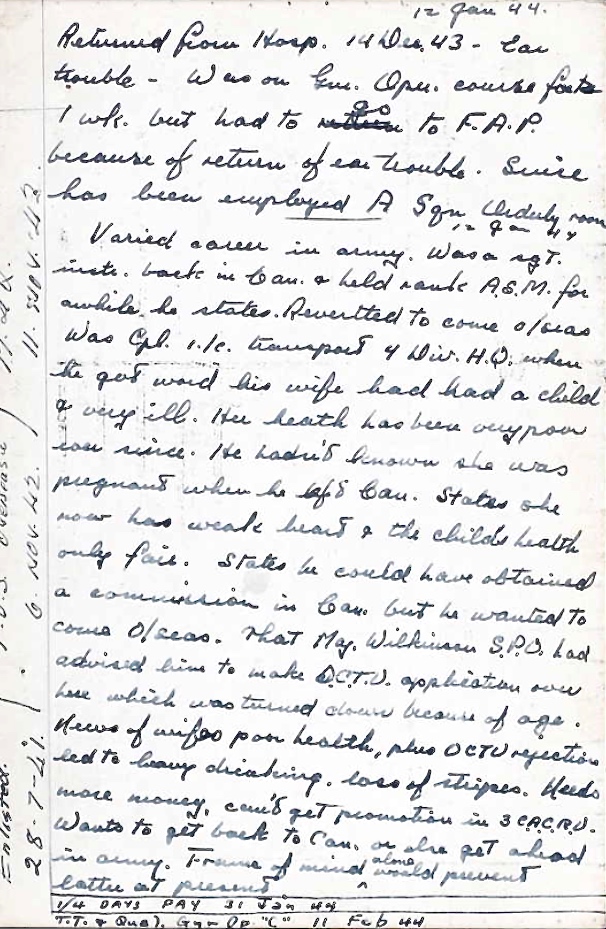 12 Jan 44.
Returned from Hosp. 14 Dec. 43 - Ear
trouble - Was on Gnr. Opr. course for
1 wk. but had to go to F.A.P.
because of return of ear trouble. Since
has been employed A Sqn Orderly room
12 Jan 44
Varied career in army. Was a sgt.
instr. back in Can. & held rank A.S.M. for
awhile he states. Revertted to come o/seas
Was Cpl. i/c. transport 4 Div. H.Q. when
he got word his wife had had a child
& very ill. Her heath has been very poor
ever since. He hadn't known she was
pregnant when he left Can. States she
now has weak heart & the childs health
only fair. States he could have obtained
a commission in Can. but he wanted to
come O/seas. That Maj. Wilkinson S.P.O. had
advised him to make O.C.T.U. application over
here which was turned down because of age.
News of wifes poor health, plus OCTU rejection
led to heavy drinking, loss of stripes. Needs
more money, can't get promotion in 3 C.A.C.R.U.
Wants to get back to Can. or else get ahead
in army. Frame of mind alone would prevent
latter at present
1/4 DAYS PAY 31 Jan 44
T.T. & Qual. Gnr Op "C" 11 Feb 44
Enlisted.
28-7-41.
6. NOV. 42.
11. NOV. 43.